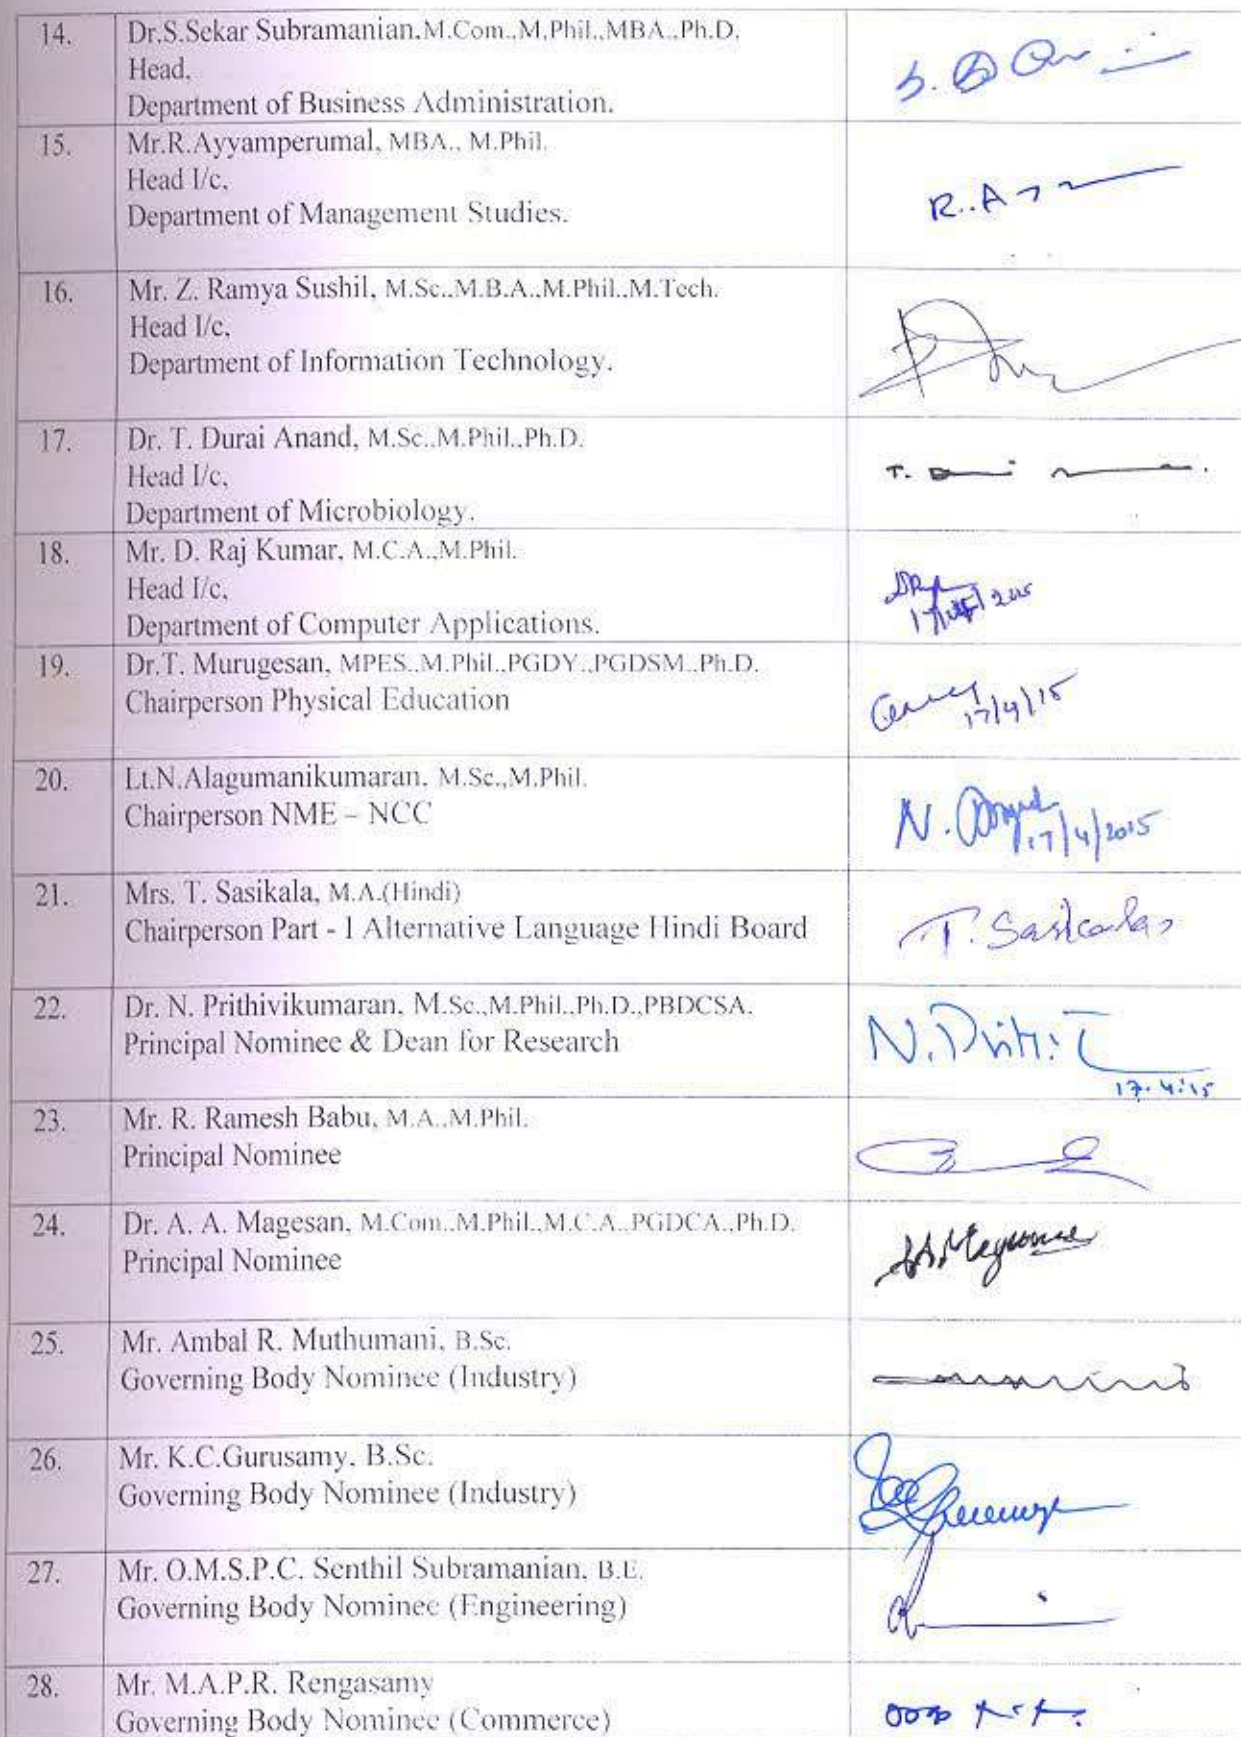 14.
Dr.S.Sekar Subramanian.M.Com.,M.Phil.,MBA.,Ph.D.
Head,
Department of Business Administration.
S.
15.
Mr.R.Ayyamperumal, MBA., M.Phil.
Head I/c,
Department of Management Studies.
R.
16.
Mr. Z. Ramya Sushil, M.Sc.,M.B.A.,M.Phil.,M.Tech.
Head I/c,
Department of Information Technology.
17.
Dr. T. Durai Anand, M.Sc.,M.Phil.,Ph.D.
Head I/c,
Department of Microbiology.
T.
18.
Mr. D. Raj Kumar, M.C.A.,M.Phil.
Head I/c,
Department of Computer Applications.
19.
Dr.T. Murugesan, MPES.,M.Phil.,PGDY.,PGDSM.,Ph.D.
Chairperson Physical Education
17/4/15
20.
Lt.N.Alagumanikumaran. M.Sc.,M.Phil.
Chairperson NME – NCC
N.
17/4/2015
21.
Mrs. T. Sasikala, M.A.(Hindi)
Chairperson Part - I Alternative Language Hindi Board
T. Sasikala
22.
Dr. N. Prithivikumaran, M.Sc.,M.Phil.,Ph.D.,PBDCSA.
Principal Nominee & Dean for Research
N.
17.4.15
23.
Mr. R. Ramesh Babu, M.A.,M.Phil.
Principal Nominee
24.
Dr. A. A. Magesan, M.Com.,M.Phil.,M.C.A.,PGDCA.,Ph.D.
Principal Nominee
25.
Mr. Ambal R. Muthumani, B.Sc.
Governing Body Nominee (Industry)
26.
Mr. K.C.Gurusamy. B.Sc.
Governing Body Nominee (Industry)
27.
Mr. O.M.S.P.C. Senthil Subramanian, B.E.
Governing Body Nominee (Engineering)
28.
Mr. M.A.P.R. Rengasamy
Governing Body Nominee (Commerce)